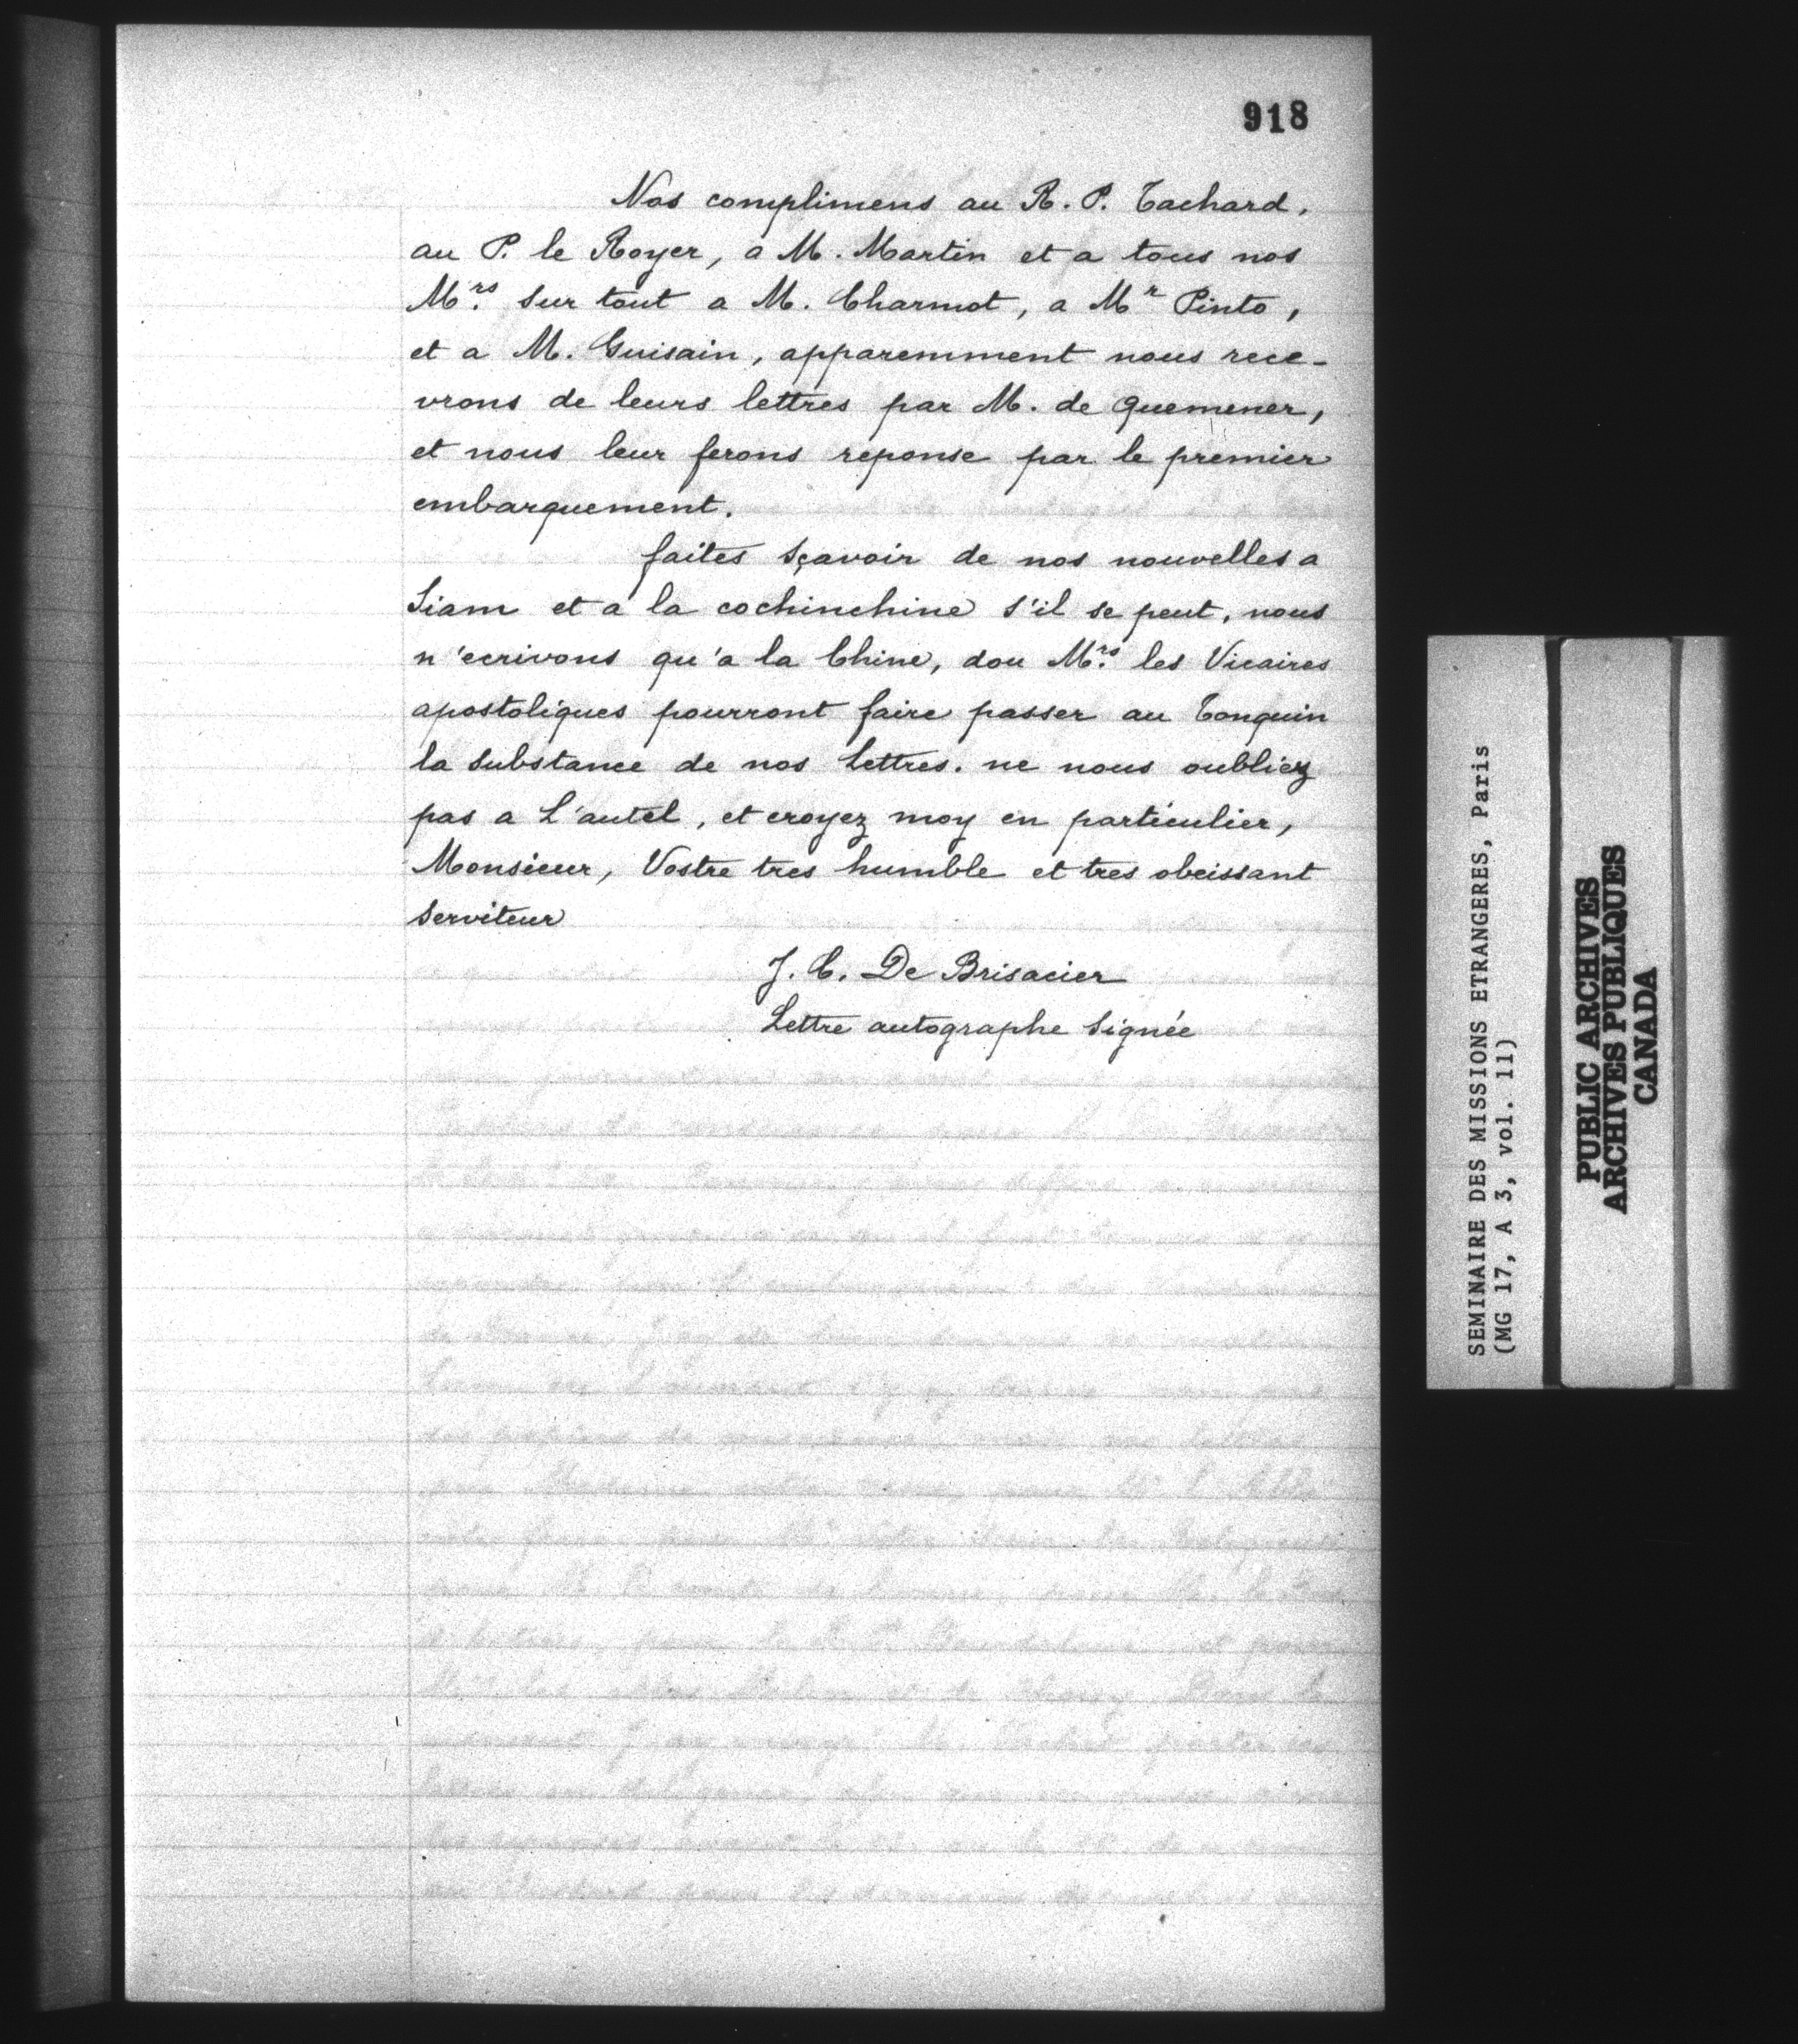 918
Nos complimens au R. P. Tachard,
au P. le Royer, a M. Martin et a tous nos
Mrs. sur tout a M. Charmot, a Mr Pinto,
et a M. Guisain, apparemment nous rece-
vrons de leurs lettres par M. de quemener,
et nous leur ferons reponse par le premier
embarquement.
faites sçavoir de nos nouvelles a
Siam et a la cochinchine s'il se peut, nous
n'ecrivons qu'a la Chine, dou Mrs. les Vicaires
apostoliques pourront faire passer au Tonquin
la substance de nos lettres. ne nous oubliez
pas a L'autel, et croyez moy en particulier,
Monsieur, Vostre tres humble et tres obeissant
serviteur
J. C. De Brisacier
Lettre autographe signée
SEMINAIRE DES MISSIONS ETRANGERES, Paris
(MG 17, A 3, vol. 11)
PUBLIC ARCHIVES
ARCHIVES PUBLIQUES
CANADA